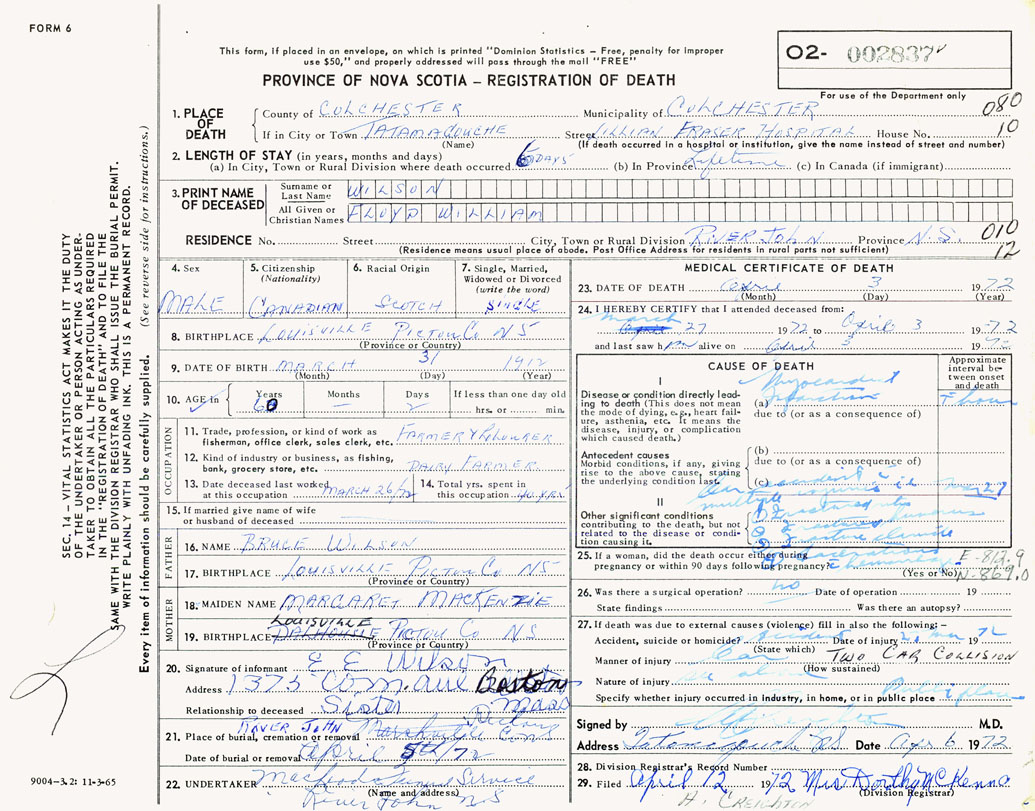 FORM 6
This form, if placed in an envelope, on which is printed "Dominion Statistics — Free, penalty for improper
use $50," and properly addressed will pass through the mail "FREE"
PROVINCE OF NOVA SCOTIA – REGISTRATION OF DEATH
O2- 002837
For use of the Department only
080
10
1. PLACE OF DEATH
County of COLCHESTER Municipality of COLCHESTER
If in City or Town TATAMAGOUCHE Street LILLIAN FRASER HOSPITAL House No.
(Name) (If death occurred in a hospital or institution, give the name instead of street and number)
2. LENGTH OF STAY (in years, months and days)
(a) In City, Town or Rural Division where death occurred 6 DAYS (b) In Province Lifetime (c) In Canada (if immigrant)
3. PRINT NAME OF DECEASED
Surname or Last Name WILSON
All Given or Christian Names FLOYD WILLIAM
010
12
RESIDENCE No. Street City, Town or Rural Division RIVER JOHN Province N.S.
(Residence means usual place of abode. Post Office Address for residents in rural parts not sufficient)
4. Sex
MALE
5. Citizenship (Nationality)
CANADIAN
6. Racial Origin
SCOTCH
7. Single, Married, Widowed or Divorced (write the word)
SINGLE
8. BIRTHPLACE LOUISVILLE PICTOU CO NS
(Province or Country)
9. DATE OF BIRTH MARCH 31 1912
(Month) (Day) (Year)
10. AGE in Years Months Days If less than one day old
60 — 2 hrs. or min.
OCCUPATION
11. Trade, profession, or kind of work as
fisherman, office clerk, sales clerk, etc. FARMER & LABOURER
12. Kind of industry or business, as fishing,
bank, grocery store, etc. DAIRY FARMER
13. Date deceased last worked
at this occupation MARCH 26/72
14. Total yrs. spent in
this occupation 40 YRS
15. If married give name of wife
or husband of deceased
FATHER
16. NAME BRUCE WILSON
17. BIRTHPLACE LOUISVILLE PICTOU CO NS
(Province or Country)
MOTHER
18. MAIDEN NAME MARGARET MACKENZIE
LOUISVILLE
19. BIRTHPLACE DALHOUSIE PICTOU CO NS
(Province or Country)
20. Signature of informant E E Wilson
Address 1375 Com. Ave Boston
Mass
Relationship to deceased Sister
21. Place of burial, cremation or removal RIVER JOHN
Date of burial or removal April 5th/72
22. UNDERTAKER Macleods Funeral Service
(Name and address)
River John NS
MEDICAL CERTIFICATE OF DEATH
23. DATE OF DEATH April 3 1972
(Month) (Day) (Year)
24. I HEREBY CERTIFY that I attended deceased from:
March 27 1972 to April 3 1972
and last saw him alive on April 3 1972
CAUSE OF DEATH
Approximate interval between onset and death
I
Disease or condition directly leading to death (This does not mean
the mode of dying, e.g., heart failure, asthenia, etc. It means the
disease, injury, or complication
which caused death.)
(a) Myocardial infarction 1 hour
due to (or as a consequence of)
Antecedent causes
Morbid conditions, if any, giving
rise to the above cause, stating
the underlying condition last.
(b)
due to (or as a consequence of)
(c) Car accident multiple injuries Mar 27
II
Other significant conditions
contributing to the death, but not
related to the disease or condition causing it.
25. If a woman, did the death occur either during
pregnancy or within 90 days following pregnancy? (Yes or No)
E-812.9
N-869.0
26. Was there a surgical operation? no Date of operation 19
State findings Was there an autopsy?
27. If death was due to external causes (violence) fill in also the following: –
Accident, suicide or homicide? accident Date of injury Mar 1972
(State which)
Manner of injury Car TWO CAR COLLISION
(How sustained)
Nature of injury see above
Specify whether injury occurred in industry, in home, or in public place Public place
Signed by M.D.
Address Tatamagouche NS Date Apr 6 1972
28. Division Registrar's Record Number
29. Filed April 12 1972 Mrs Dorthy McKenna
(Division Registrar)
H. CREIGHTON
SEC. 14 – VITAL STATISTICS ACT MAKES IT THE DUTY
OF THE UNDERTAKER OR PERSON ACTING AS UNDER-
TAKER TO OBTAIN ALL THE PARTICULARS REQUIRED
IN THE "REGISTRATION OF DEATH" AND TO FILE THE
SAME WITH THE DIVISION REGISTRAR WHO SHALL ISSUE THE BURIAL PERMIT.
WRITE PLAINLY WITH UNFADING INK. THIS IS A PERMANENT RECORD.
Every item of information should be carefully supplied. (See reverse side for instructions.)
9004-3.2: 11-3-65